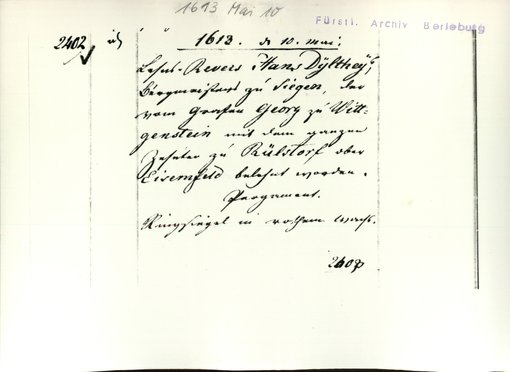 1613 Mai 10
Fürstl. Archiv Berleburg
2402
1613. d 10. Mai.
Lehns-Revers Hans Dÿltheÿ,
Bergmeisters zu Siegen, der
vom Grafen Georg zu Witt-
genstein mit dem ganzen
Zehnten zu Rülsdorf ober
Eisernfeld belehnt worden.
Pergament.
Ringsiegel in rothem Wachs.